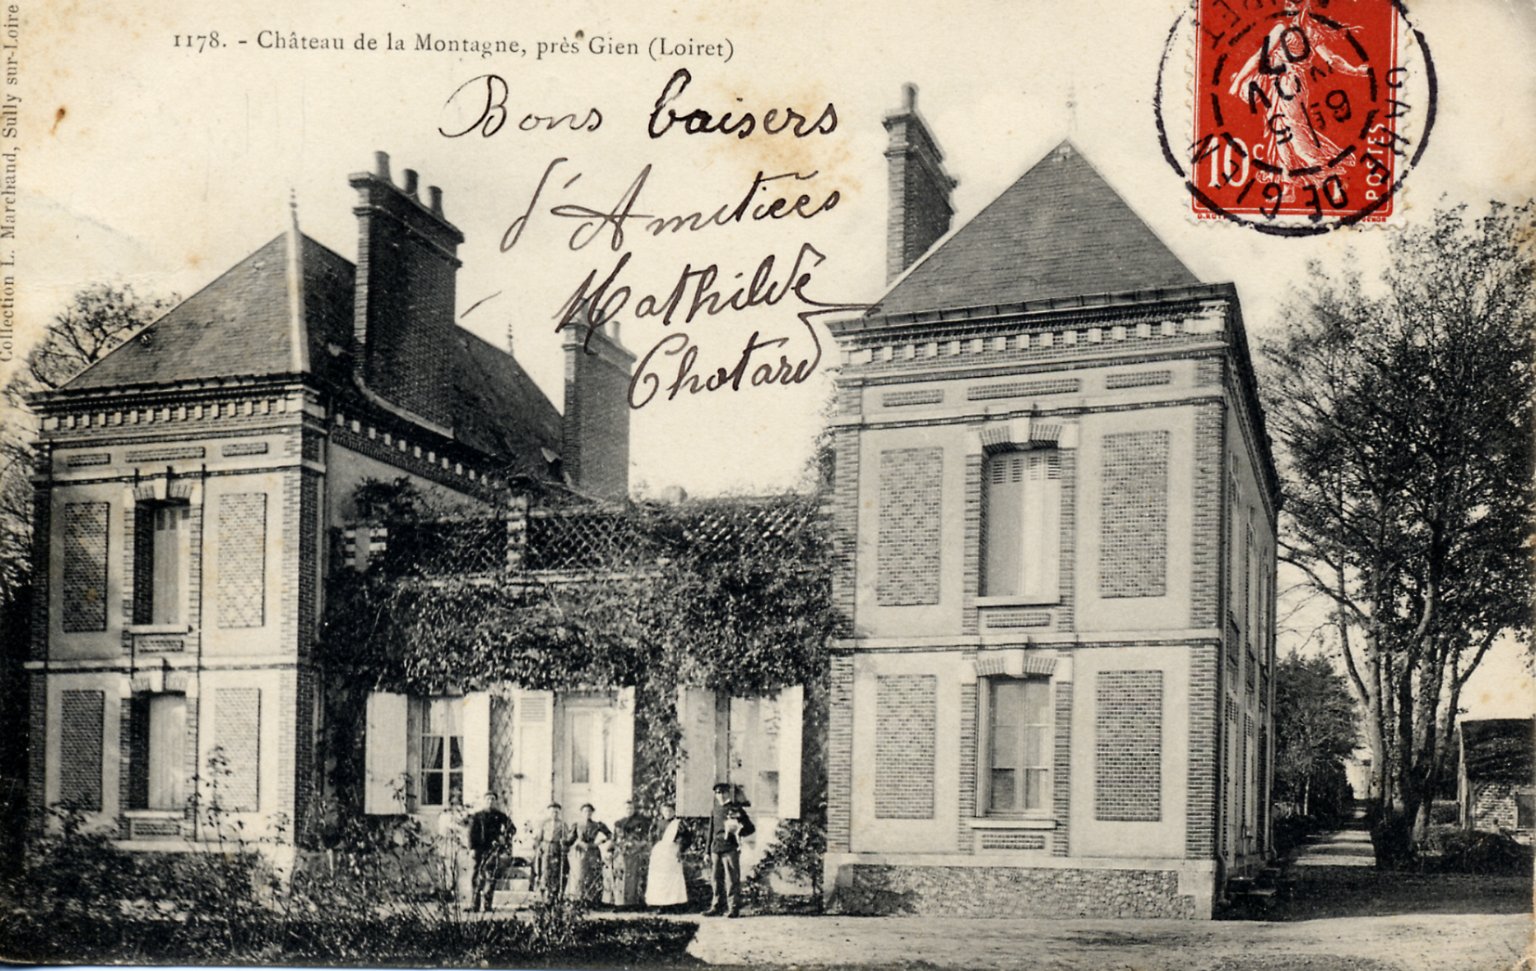 1178. - Château de la Montagne, près Gien (Loiret)
Collection L. Marchand, Sully sur-Loire
Bons baisers
d'Amitiées
Mathilde
Chotard
10c
POSTES
GARE DE GIEN